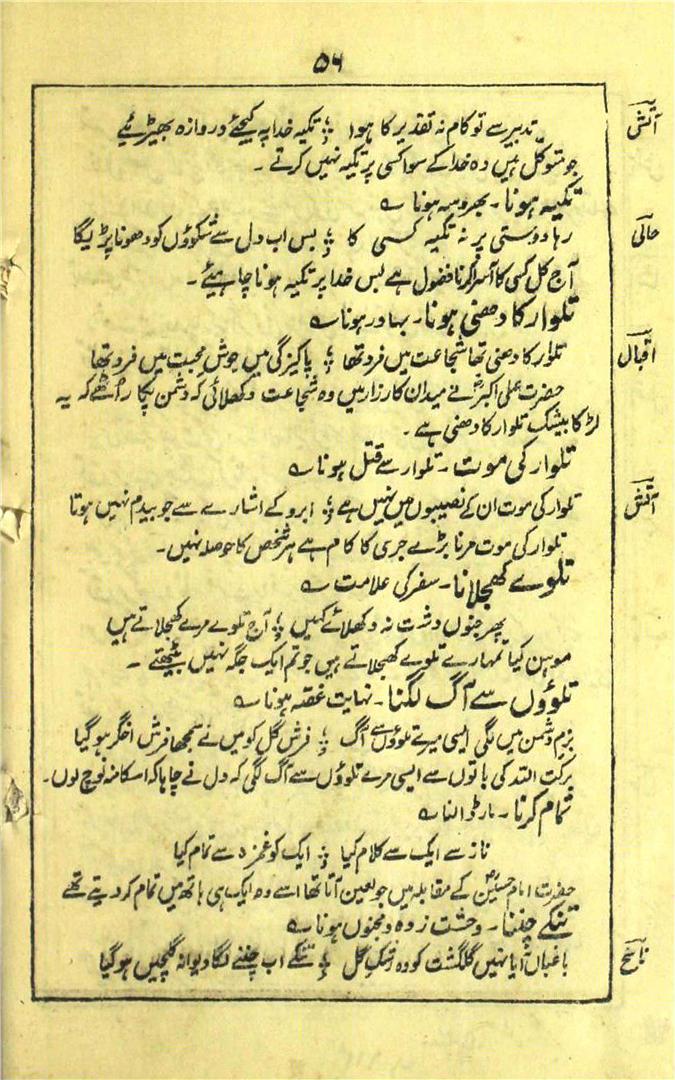 ۵۶
آتش
تدبیر سے تو کام نہ تقدیر کا ہوا ؛ تکیہ خدا پہ کیجئے دروازہ بھیڑئیے
جو متوکل ہیں وہ خدا کے سوا کسی پر تکیہ نہیں کرتے ۔
تکیہ ہونا ۔ بھروسہ ہونا ؎
حالی
رہا دوستی پر نہ تکیہ کسی کا ؛ بس اب دل سے شکووں کو دھونا پڑیگا
آج کل کسی کا آسرا کرنا فضول ہے بس خدا پر تکیہ ہونا چاہیئے ۔
تلوار کا دھنی ہونا ۔ بہادر ہونا ؎
اقبال
تلوار کا دھنی تھا شجاعت میں فرد تھا ؛ پاکیزگی میں جوش محبت میں فرد تھا
حضرت علی اکبرؑ نے میدان کارزار میں وہ شجاعت دکھلائی کہ دشمن پکار اُٹھے کہ یہ
لڑکا بیشک تلوار کا دھنی ہے ۔
تلوار کی موت ۔ تلوار سے قتل ہونا ؎
آتش
تلوار کی موت ان کے نصیبوں میں نہیں ہے ؛ ابرو کے اشارے سے جو بیدم نہیں ہوتا
تلوار کی موت مرنا بڑے جری کا کام ہے ہر شخص کا حوصلہ نہیں ۔
تلوے کھجلانا ۔ سفر کی علامت ؎
پھر جنوں دشت نہ دکھلائے کہیں ؛ آج تلوے مرے کھجلاتے ہیں
موہن کیا تمہارے تلوے کھجلاتے ہیں جو تم ایک جگہ نہیں بیٹھتے ۔
تلوؤں سے آگ لگنا ۔ نہایت غصہ ہونا ؎
بزم دشمن میں لگی ایسی میرے تلوؤں سے آگ ؛ فرش گل کو میں نے سمجھا فرش اخگر ہو گیا
برکت اللہ کی باتوں سے ایسی مرے تلوؤں سے آگ لگی کہ دل نے چاہا کہ اسکا منہ نوچ لوں ۔
تمام کرنا ۔ مار ڈالنا ؎
ناز سے ایک سے کلام کیا ؛ ایک کو غمزہ سے تمام کیا
حضرت امام حسینؑ کے مقابلہ میں جو لعین آتا تھا اسے وہ ایک ہی ہاتھ میں تمام کر دیتے تھے
تنکے چننا ۔ وحشت زدہ و مجنوں ہونا ؎
ناسخ
باغباں آیا نہیں گلگشت کو وہ رشک گل ؛ تنکے اب چننے لگا دیوانہ گلچیں ہو گیا